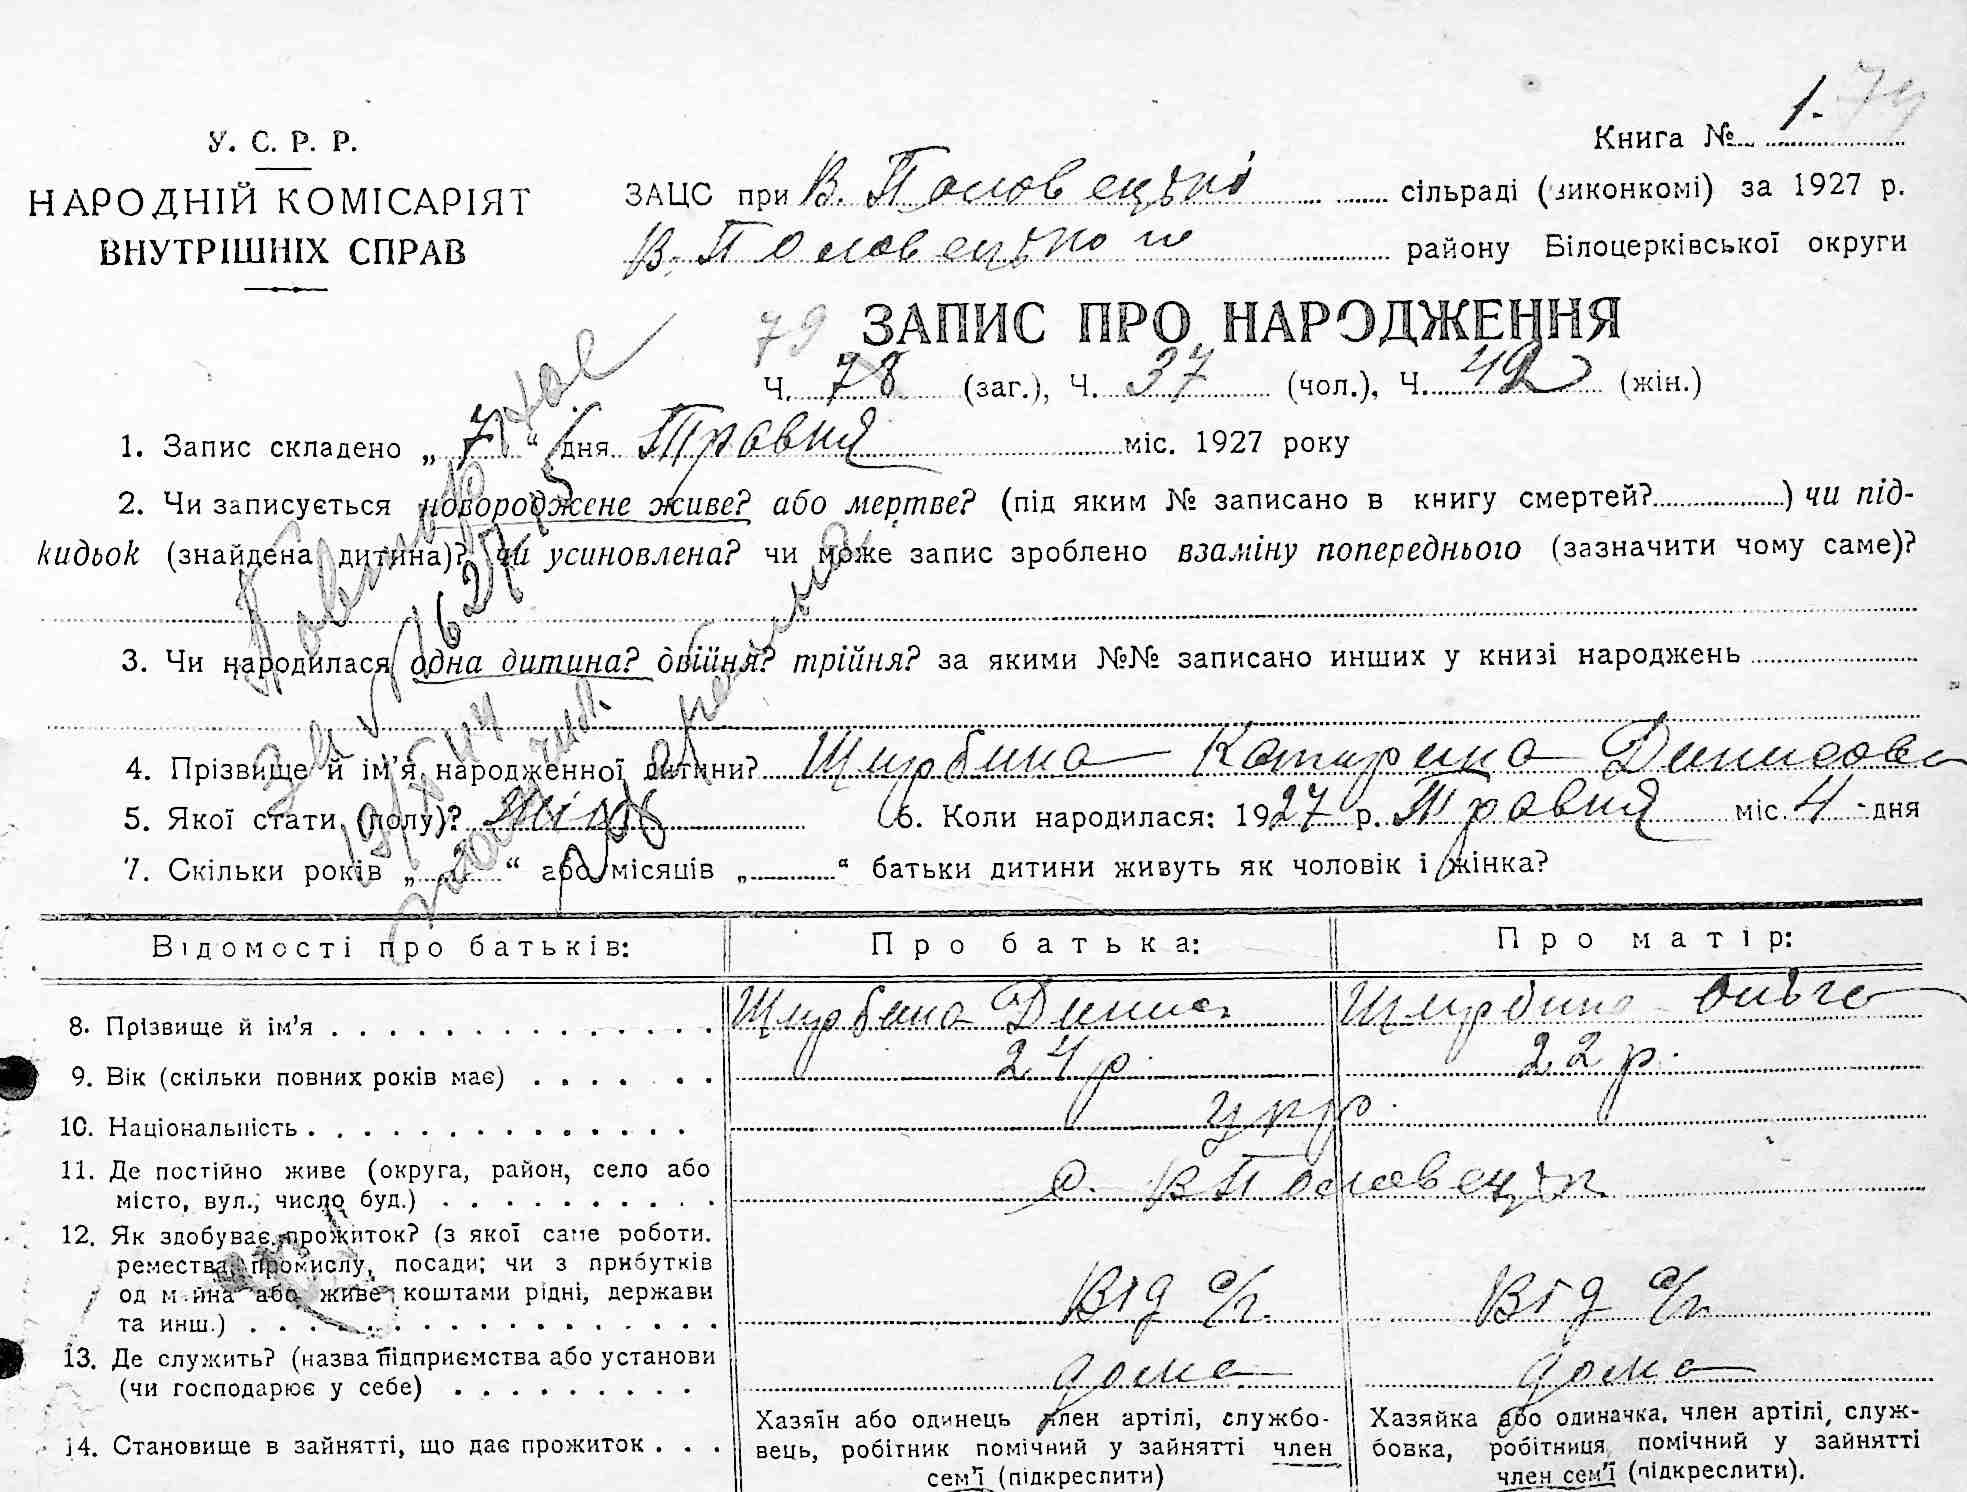 Книга № 1. 74
У. С. Р. Р.
НАРОДНІЙ КОМІСАРІЯТ
ВНУТРІШНІХ СПРАВ
ЗАЦС при В. Половецькі сільраді (виконкомі) за 1927 р.
В. Половецького району Білоцерківської округи
79 ЗАПИС ПРО НАРОДЖЕННЯ
Ч. 78 (заг.), Ч. 37 (чол.), Ч. 42 (жін.)
1. Запис складено „ 7 “ дня Травня міс. 1927 року
2. Чи записується новороджене живе? або мертве? (під яким № записано в книгу смертей?) чи під-
кидьок (знайдена дитина)? чи усиновлена? чи може запис зроблено взаміну попереднього (зазначити чому саме)?
3. Чи народилася одна дитина? двійня? трійня? за якими №№ записано инших у книзі народжень
4. Прізвище й ім'я народженної дитини? Щирбина Катирина Динисова
5. Якої стати (полу)? жіноч 6. Коли народилася: 1927 р. Травня міс. 4 -дня
7. Скільки років „ “ або місяців „ “ батьки дитини живуть як чоловік і жінка?
Відомості про батьків: Про батька: Про матір:
8. Прізвище й ім'я Щирбина Динис Щирбина Ольга
9. Вік (скільки повних років має) 24 р. 22 р.
10. Національність укр.
11. Де постійно живе (округа, район, село або
місто, вул., число буд.) с. В Половецьк
12. Як здобуває прожиток? (з якої саме роботи.
ремества, промислу, посади; чи з прибутків
од майна або живе коштами рідні, держави
та инш.) Від с/г. Від с/г
13. Де служить? (назва підприємства або установи
(чи господарює у себе) дома дома
14. Становище в зайнятті, що дає прожиток
Хазяїн або одинець член артілі, службо-
вець, робітник помічний у зайнятті член
сем'ї (підкреслити)
Хазяйка або одиначка, член артілі, служ-
бовка, робітниця помічний у зайнятті
член сем'ї (підкреслити).